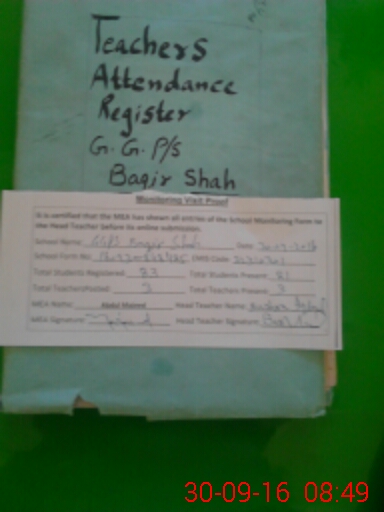 Teachers
Attendance
Register
G. G. P/S
Baqir Shah
Monitoring Visit Proof
It is certified that the MEA has shown all entries of the School Monitoring Form to
the Head Teacher before its online submission.
School Name: GGPS Baqir Shah Date:
School Form No: EMIS Code:
Total Students Registered: 23 Total Students Present: 21
Total TeachersPosted: 3 Total Teachers Present: 3
MEA Name: Abdul Majeed Head Teacher Name:
MEA Signature: Head Teacher Signature:
30-09-16 08:49